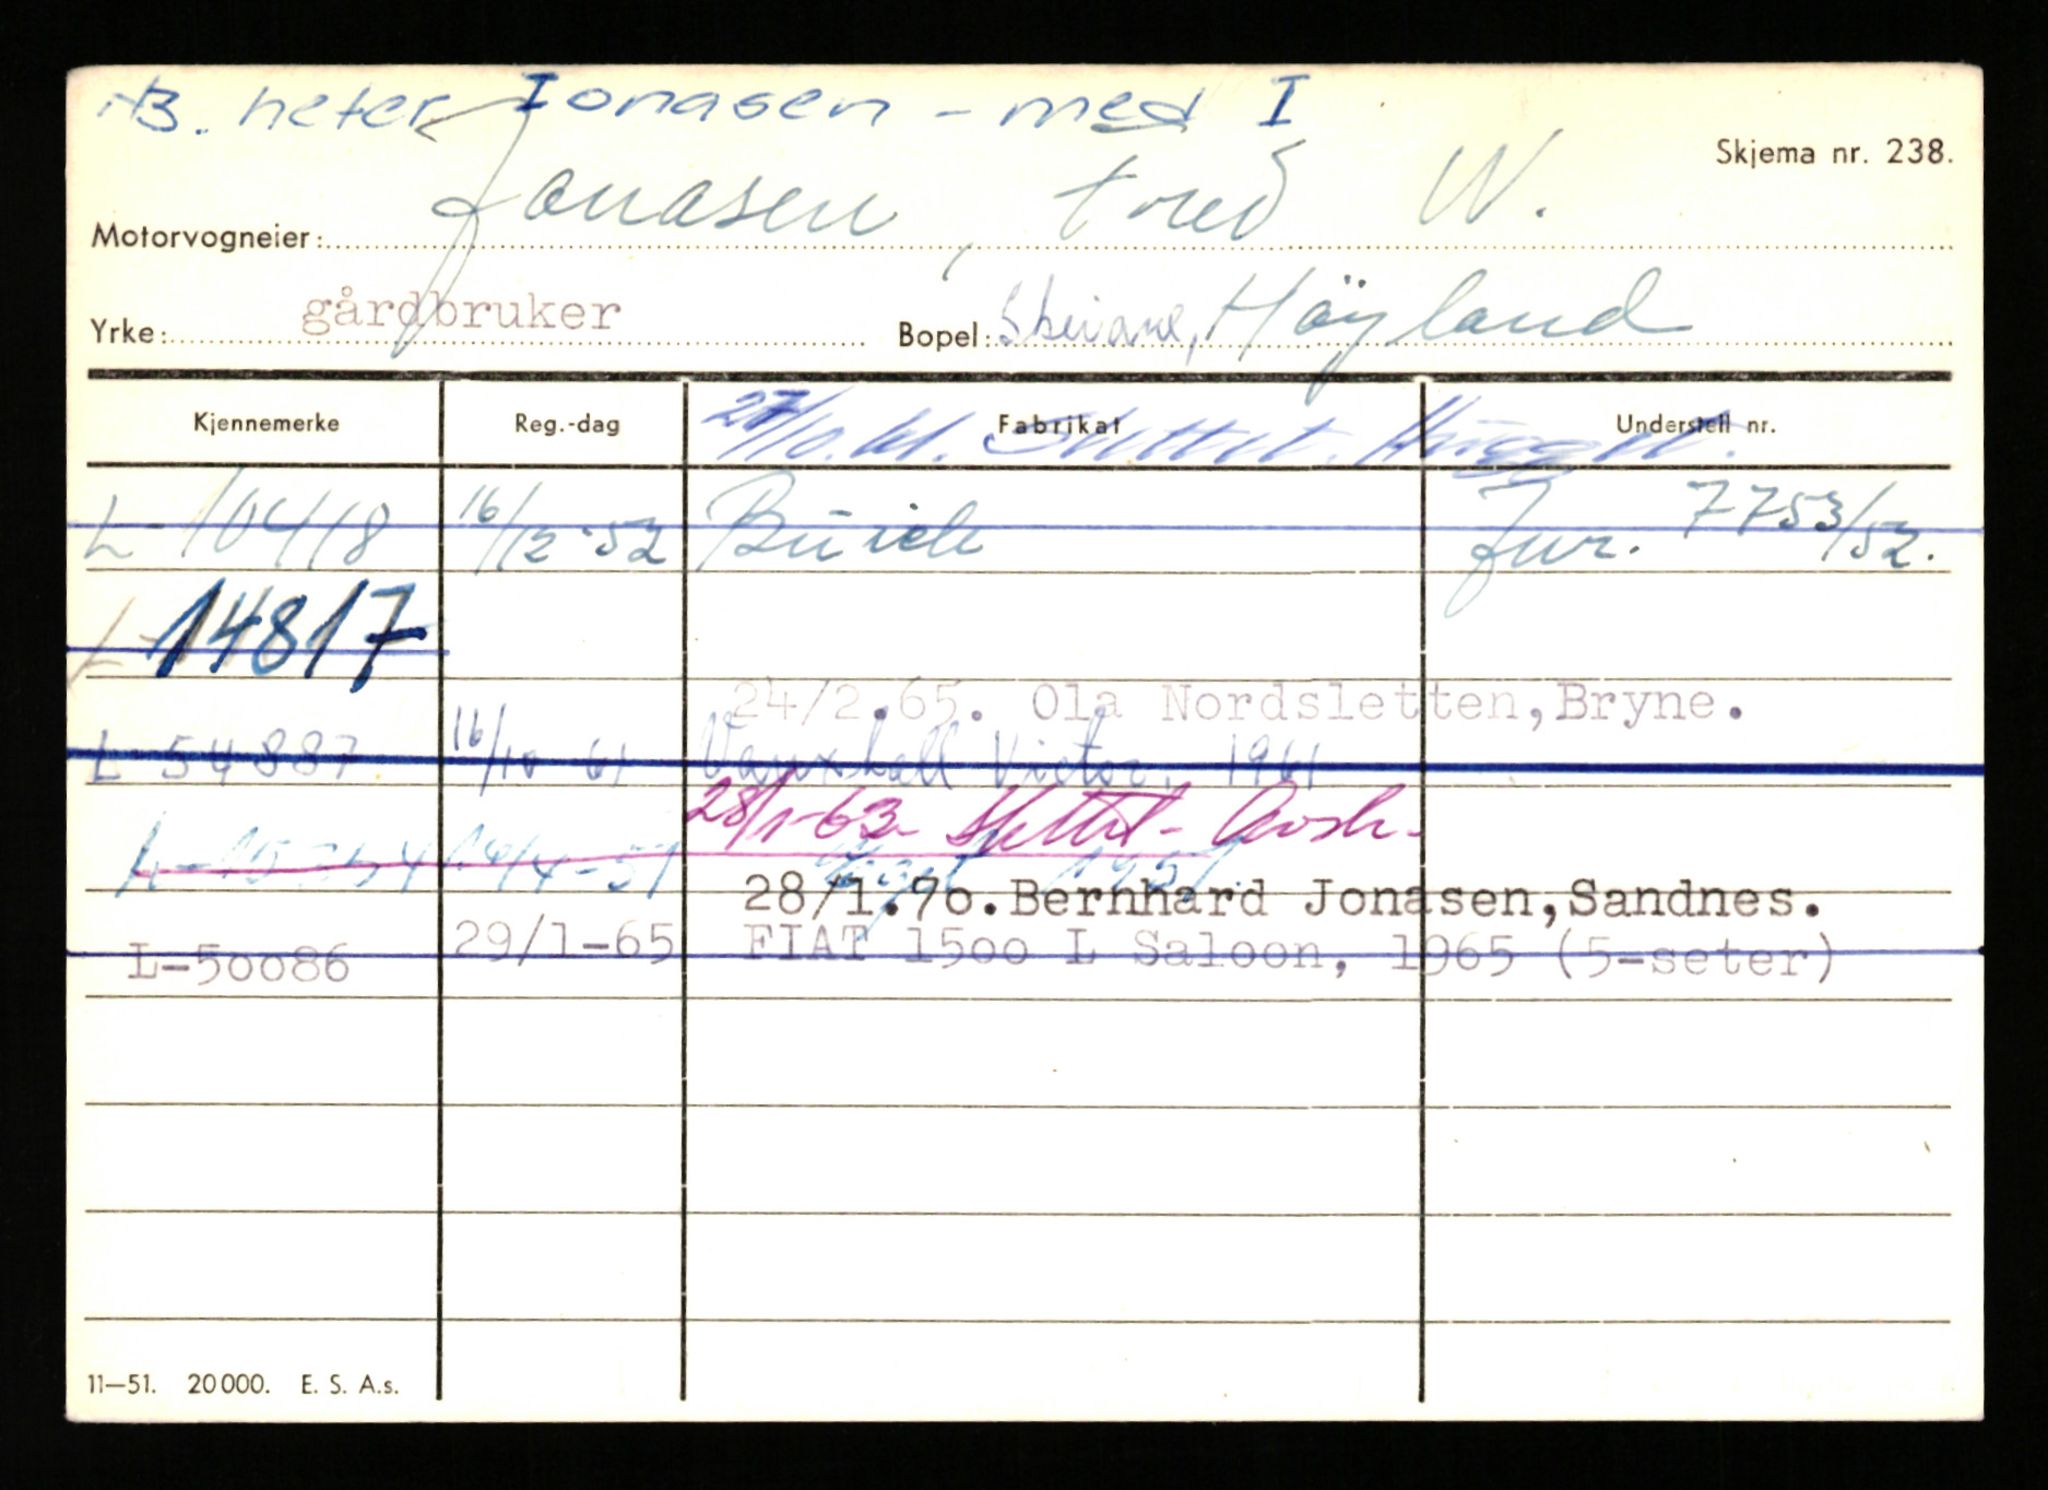 NB. heter Ionasen - med I
Skjema nr. 238.
Motorvogneier: Jonasen, Fred W.
Yrke: gårdbruker Bopel: Skeiane, Höyland
Kjennemerke Reg.-dag Fabrikat Understell nr.
27/10.61. Slettet. Hugget.
L-10418 16/12-52 Buick Jnr. 7753/52.
L-14817
24/2.65. Ola Nordsletten,Bryne.
L-54887 16/10 61 Vauxhall Victor, 1961
28/1-63 Slettet-
14/4-51 1951
28/1.70.Bernhard Jonasen,Sandnes.
L-50086 29/1-65 FIAT 1500 L Saloon, 1965 (5-seter)
11—51. 20 000. E. S. A.s.